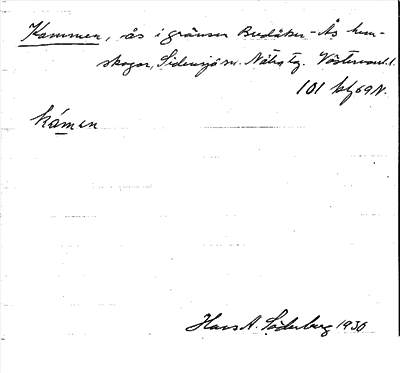 Kammen, ås i gränsen Bredåker-Ås hem-
skogar, Sidensjö sn. Nätra tg. Västernorrl. l.
101 bl. 69 N.
kámen
Hans A. Söderberg 1930